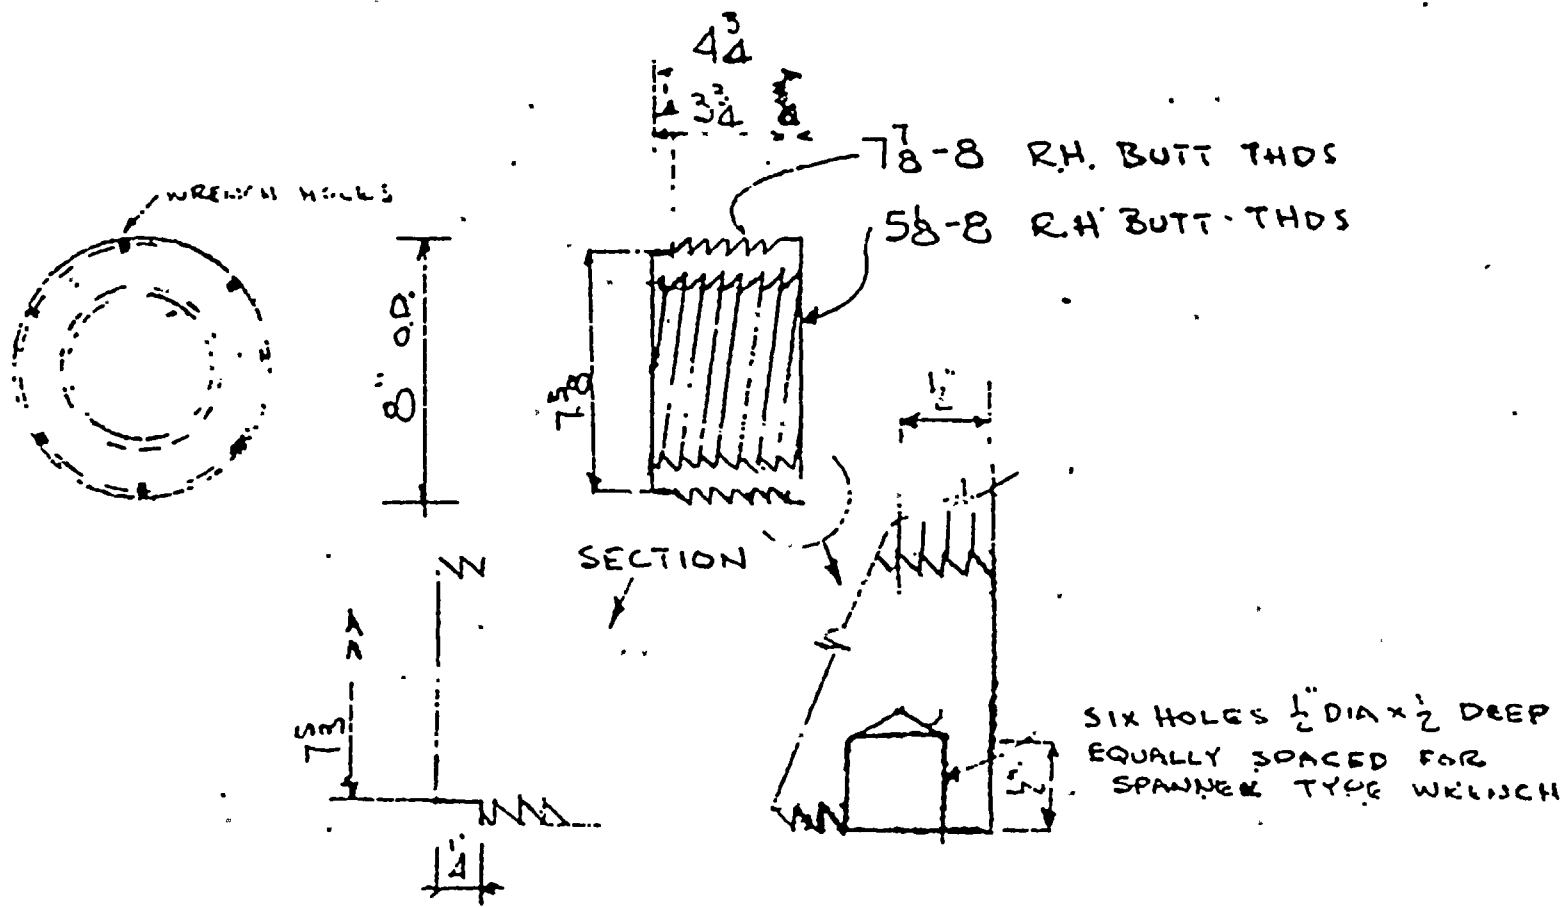 4 3/4
3 3/4
7 7/8-8 R.H. BUTT THDS
5 1/8-8 R.H. BUTT. THDS
WRENCH HOLES
8" O.D.
7 5/8
1/2"
SECTION
SIX HOLES 1/2" DIA x 1/2 DEEP
EQUALLY SPACED FOR
SPANNER TYPE WRENCH
1/2"
1/4"